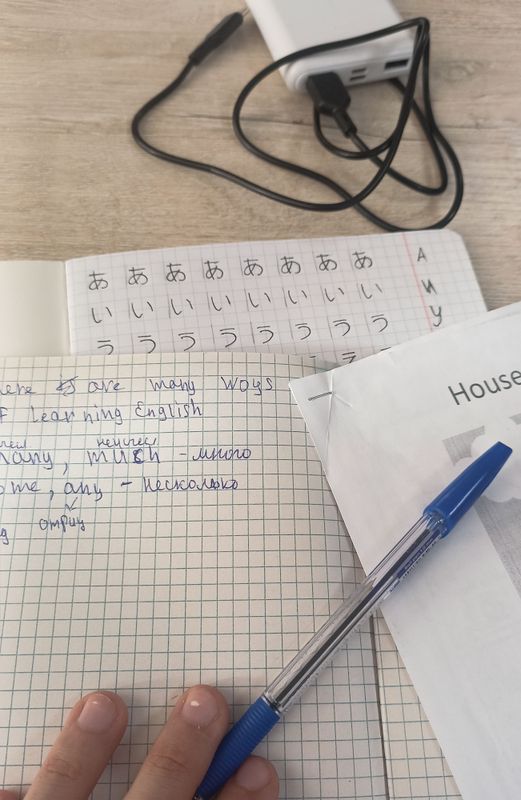 あ あ あ あ あ あ あ あ А
い い い い い い い い И
う う う う う う う う У
House
ere are many ways
f learning English
many, much - много
ome, any - несколько
отриц